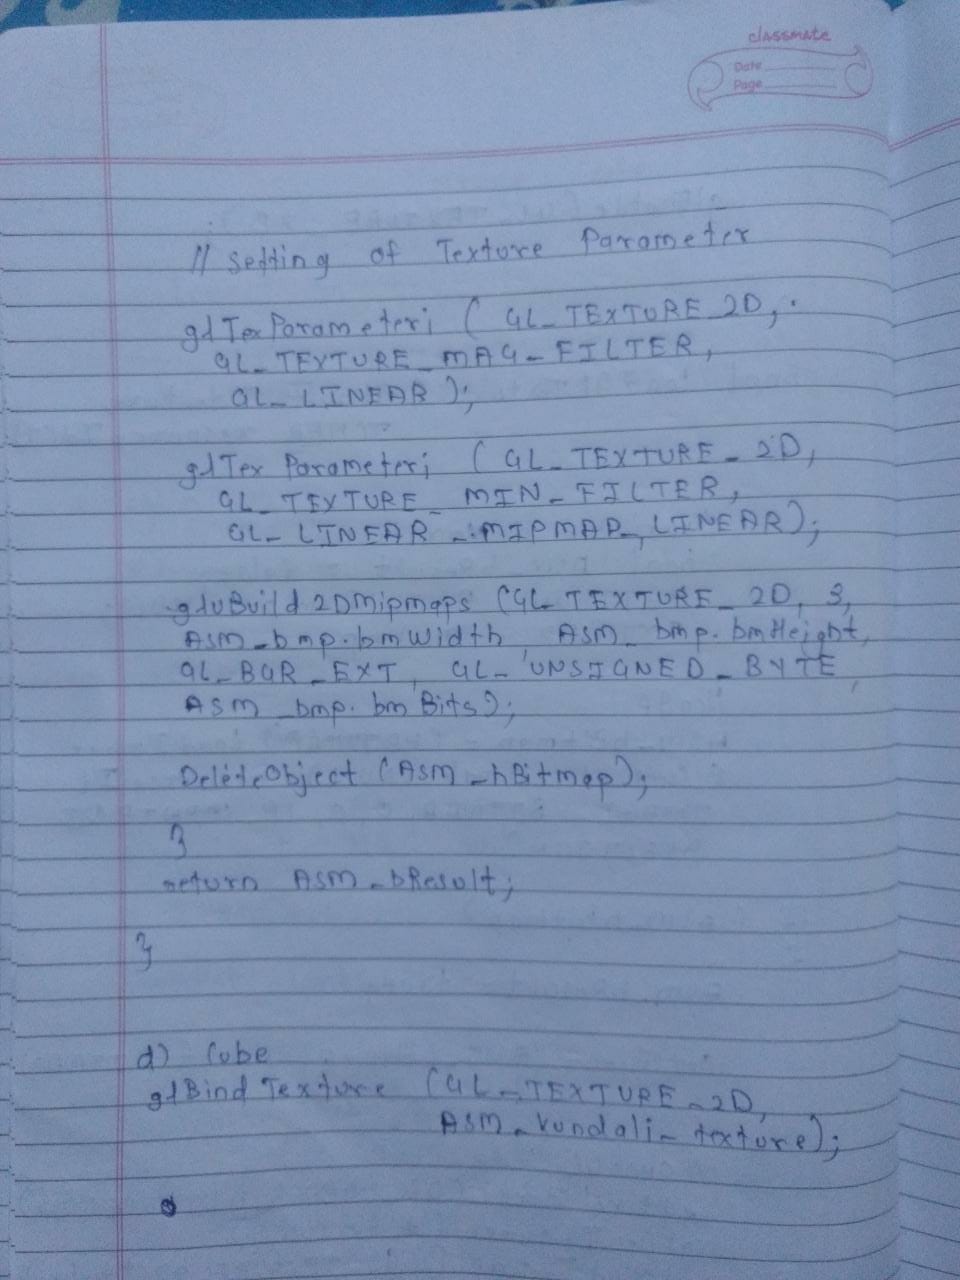 classmate
Date
Page
// Setting of Texture Parameter
glTexParameteri ( GL_TEXTURE_2D,
GL_TEXTURE_MAG_FILTER,
GL_LINEAR );
glTex Parameteri ( GL_TEXTURE_2D,
GL_TEXTURE_MIN_FILTER,
GL_LINEAR_MIPMAP_LINEAR);
gluBuild2DMipmaps (GL_TEXTURE_2D, 3,
ASM_bmp.bmWidth ASM_bmp.bmHeight,
GL_BGR_EXT, GL_UNSIGNED_BYTE,
ASM_bmp.bmBits);
DeleteObject (ASM_hBitmap);
}
return ASM_bResult;
}
d) Cube
glBindTexture (GL_TEXTURE_2D,
ASM_kundali_texture);